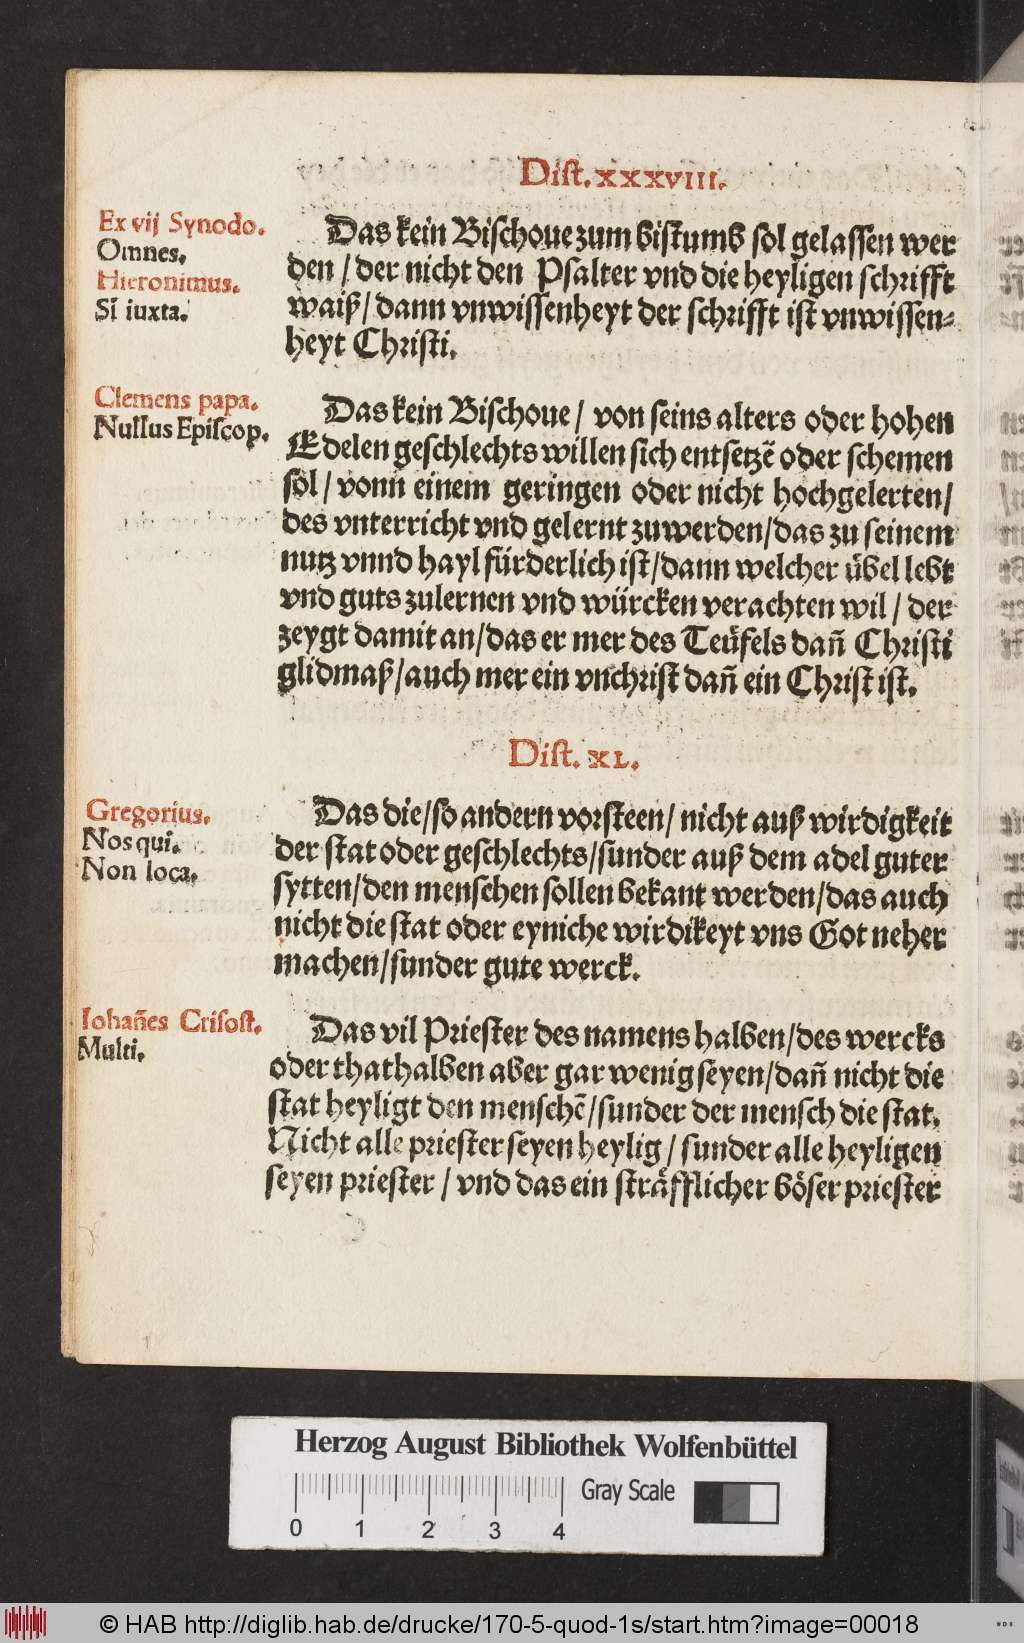 Dist. xxxviii.
Ex vij Synodo.
Omnes.
Hieronimus.
Si iuxta.
Das kein Bischoue zum bistumb sol gelassen wer
den / der nicht den Psalter vnd die heyligen schrifft
waiß / dann vnwissenheyt der schrifft ist vnwissen⸗
heyt Christi.
Clemens papa.
Nullus Episcop.
Das kein Bischoue / von seins alters oder hohen
Edelen geschlechts willen sich entsetzē oder schemen
sol / vonn einem geringen oder nicht hochgelerten /
des vnterricht vnd gelernt zuwerden / das zu seinem
nutz vnnd hayl fürderlich ist / dann welcher übel lebt
vnd guts zulernen vnd würcken verachten wil / der
zeygt damit an / das er mer des Teüfels dañ Christi
glidmaß / auch mer ein vnchrist dañ ein Christ ist.
Dist. xl.
Gregorius.
Nos qui.
Non loca.
Das die / so andern vorsteen / nicht auß wirdigkeit
der stat oder geschlechts / sunder auß dem adel guter
sytten / den menschen sollen bekant werden / das auch
nicht die stat oder eyniche wirdikeyt vns Got neher
machen / sunder gute werck.
Iohañes Crisost.
Multi.
Das vil Priester des namens halben / des wercks
oder thathalben aber gar wenig seyen / dañ nicht die
stat heyligt den menschē / sunder der mensch die stat.
Nicht alle priester seyen heylig / sunder alle heyligen
seyen priester / vnd das ein sträfflicher böser priester
Herzog August Bibliothek Wolfenbüttel
Gray Scale
0 1 2 3 4
© HAB http://diglib.hab.de/drucke/170-5-quod-1s/start.htm?image=00018